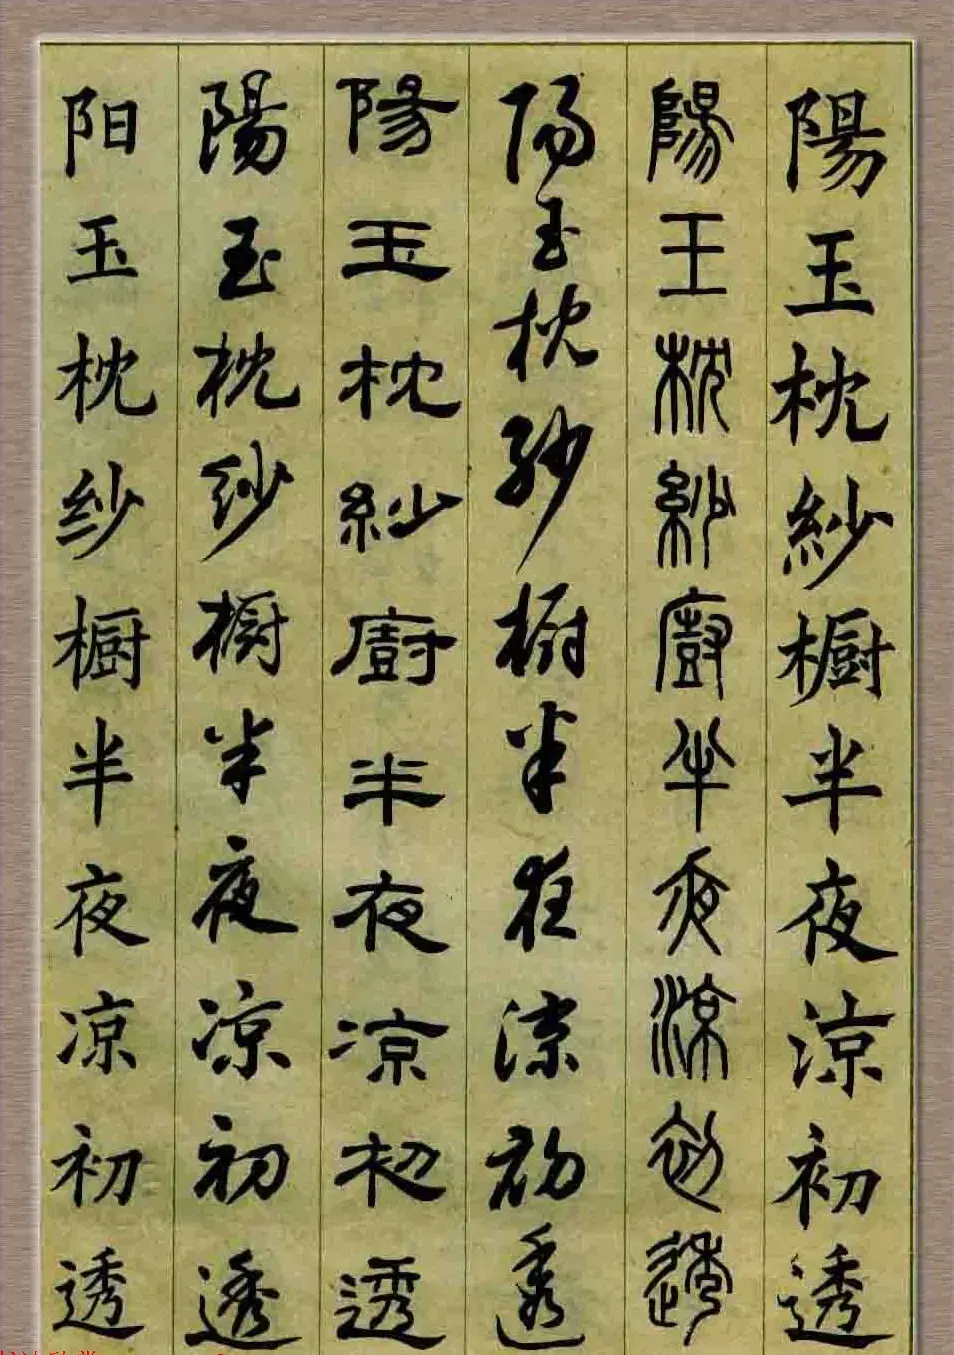 陽玉枕紗橱半夜涼初透
陽王枕紗廚半夜涼初透
陽玉枕紗橱半夜涼初透
陽玉枕紗廚半夜凉初透
陽玉枕纱橱半夜凉初透
阳玉枕纱橱半夜凉初透